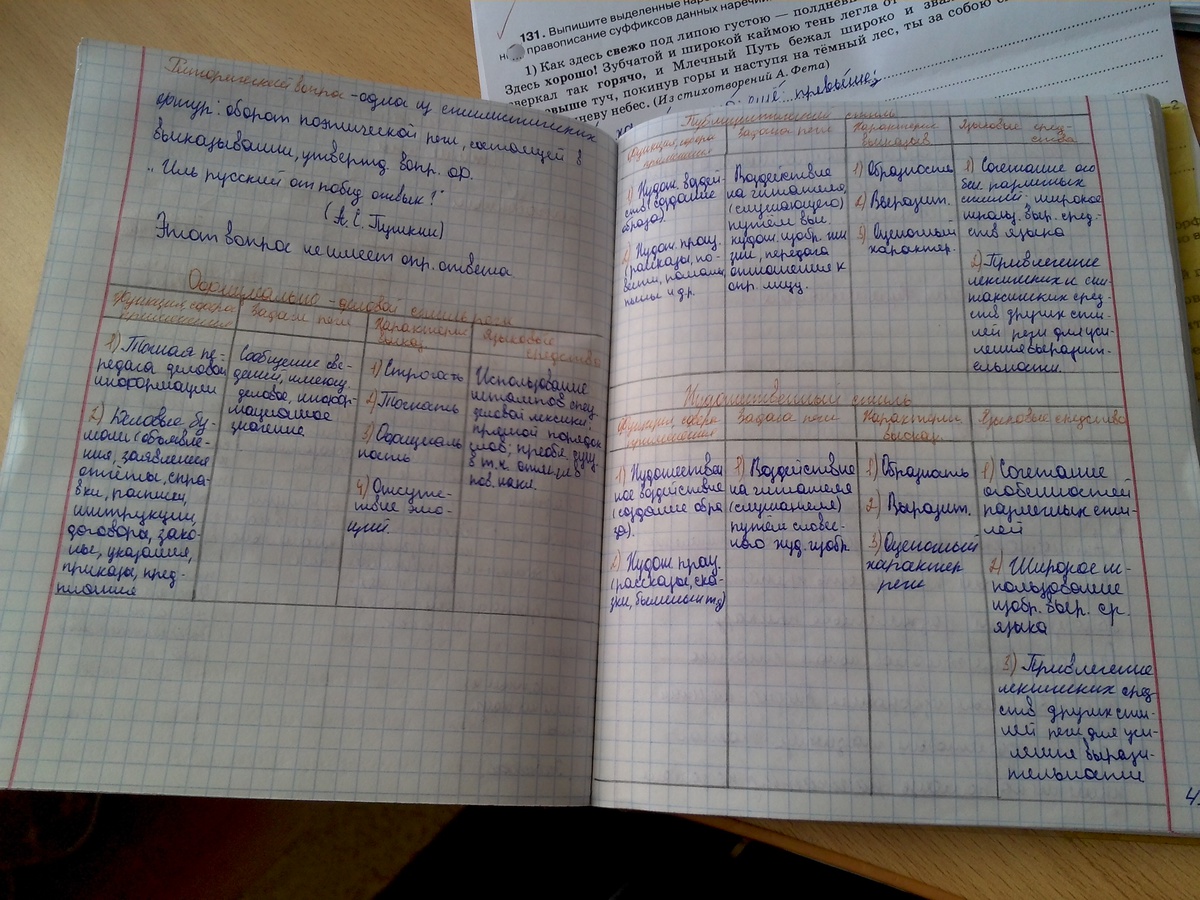 131. Выпишите выделенные наре
правописание суффиксов данных наречий
1) Как здесь свежо под липою густою — полдневн
Здесь хорошо! Зубчатой и широкой каймою тень легла от
сверкал так горячо, и Млечный Путь бежал широко и зва
выше туч, покинув горы и наступя на тёмный лес, ты за собою
гневу небес. (Из стихотворений А. Фета)
Риторический вопрос - одна из стилистических
фигур: оборот поэтической речи, состоящей в
высказывании, утвержд. вопр. ф.
"Иль русский от побед отвык?"
(А. С. Пушкин)
Этот вопрос не имеет опр. ответа
Официально - деловой стиль речи
Функция, сфера
применения
Задачи речи
Характерис
выказ.
Языковые
средства
1) Точная пе-
редача деловой
информации
2) Деловые бу-
маги (объявле-
ния, заявления
отчёты, спра-
вки, расписки,
инструкции,
договоры, зако-
ны, указания,
приказы, пред-
писания
Сообщение све-
дений, имеющ.
деловое, инфор-
мационное
значение
1) Строгость
2) Точность
3) Официаль
ность
4) Отсутс-
твие эмо-
ций.
Использование
штампов спец.
деловой лексики
прямой порядок
слов; преобл. сущ.
в т.ч. отглаг. в
пов. накл.
Публицистический стиль
Функция, сфера
применения
Задачи речи
Характерис
выказыв.
Языковые сред-
ства
1) Худож. воздей-
ств. (создание
образа)
2) Худож. произ.
(рассказы, по-
вести, романы,
пьесы и др.
Воздействие
на читателя,
(слушающего)
путём вы
худож. изобр. жи
зни, передача
отношения к
опр. лицу.
1) Образность
2) Выразит.
3) Оценочный
характер.
1) Сочетание осо
бен. различных
стилей; широкое
использ. выр. сред-
ств языка
2) Привлечение
лексических и син-
таксических сред-
ств других сти-
лей речи для уси-
ления выразит-
ельности.
Художественный стиль
Функция, сфера
применения
Задача речи
Характерис
выскаж.
Языковые средства
1) Художествен
ное воздействие
(создание обра
за).
2) Худож. произ.
(рассказы, ска-
зки, былины и тд)
1) Воздействие
на читателя
(слушателя)
путём словес-
ного худ. изобр.
1) Образность
2) Выразит.
3) Оценочный
характер
речи
1) Сочетание
особенностей
различных сти-
лей
2) Широкое ис-
пользование
изобр. выр. ср.
языка
3) Привлечение
лексических сред-
ств других сти-
лей речи для уси-
ления вырази-
тельности